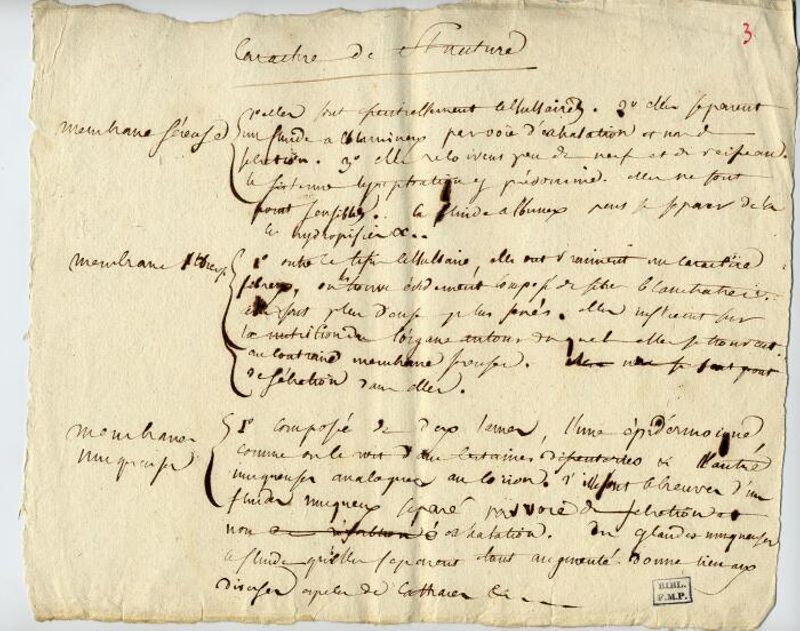 3
Caractere de Structure
membrane séreuse
1° elles sont essentiellement cellulaires. 2° elles separent
un fluide albumineux par voie d'exhalation et non de
sécrétion. 3° elles recoivent peu de nerf et de vaisseau.
le systeme lymphatique y prédomine. elles ne sont
point sensibles. le fluide albuneux peut se separer de la
les hydropisies &..
membrane fibreuse
1° outre le tissu cellulaire, elles ont vraiment un caractère
fibreux, on les trouve évidément composé de fibres blanchatres.
elles sont plus dense plus serrés. elles influent sur
la nutrition de l'organe autour duquel elles se trouvent.
au contraire membrane sereuse. ne se font point
de sécrétion dans elles.
membranes
muqueuses
1° composé de deux lames, l'une épidermoique
comme on le voit dans certaines & l'autre
muqueuses analogue au corion. 2° elles sont abreuver d'un
fluide muqueux separé par voie de secretion et
non exhalation. Des glandes muqueuses
le fluide qu'elles separent étant augmenté donne lieu aux
diverses de Catharres &c
BIBL.
F.M.P.